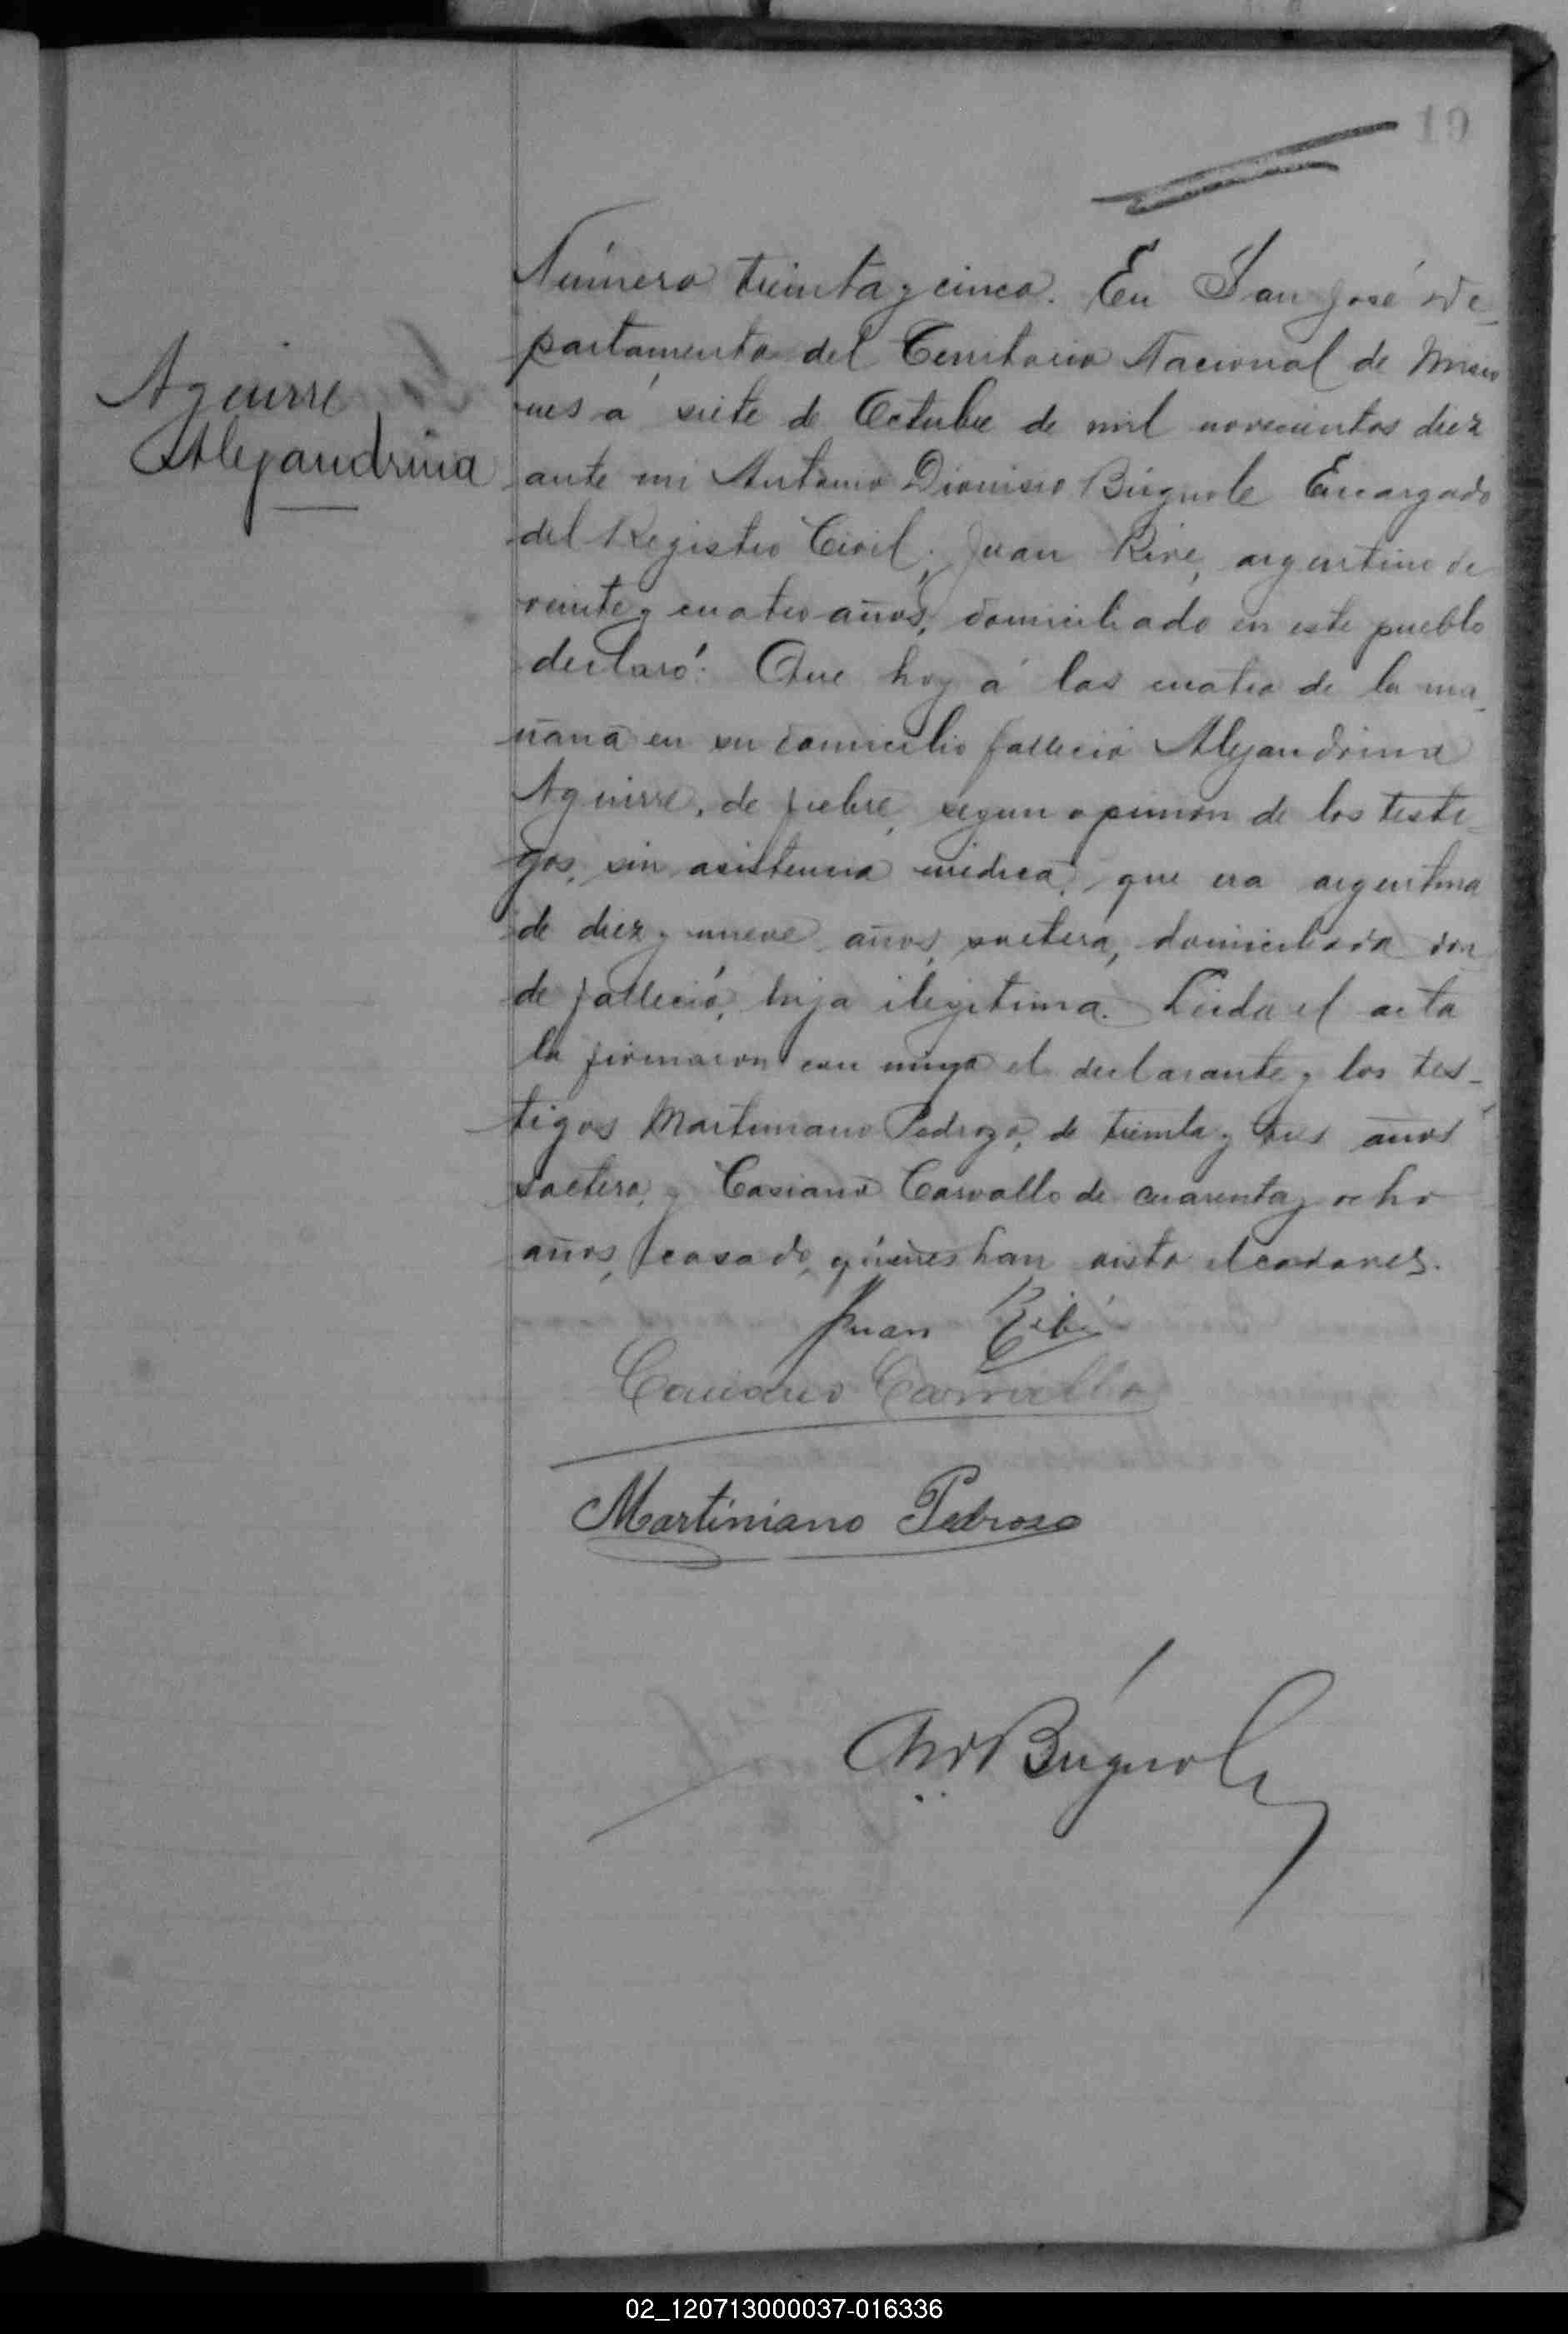 19
Aguirre
Alejandrina
Número treinta y cinco. En San José De-
partamento del Territorio Nacional de Misio
nes á siete de Octubre de mil novecientos diez
ante mi Antonio Dionisio Búgnole Encargado
del Registro Civil; Juan Rive, argentino de
veinte y cuatro años, domiciliado en este pueblo
declaró: Que hoy á las cuatro de la ma-
ñana en su domicilio falleció Alejandrina
Aguirre, de fiebre, segun opinion de los testi-
gos, sin asistencia médica, que era argentina
de diez y nueve años, soltera, domiciliada don
de falleció, hija ilegitima. Leida el acta
la firmaron con migo el declarante y los tes-
tigos Martiniano Pedrozo, de treinta y tres años
soltero, y Casiano Carvallo de cuarenta y ocho
años, casado, quienes han visto el cadaver.
Juan Ribé
Casiano Carvallo
Martiniano Pedrozo
Búgnole
02_120713000037-016336